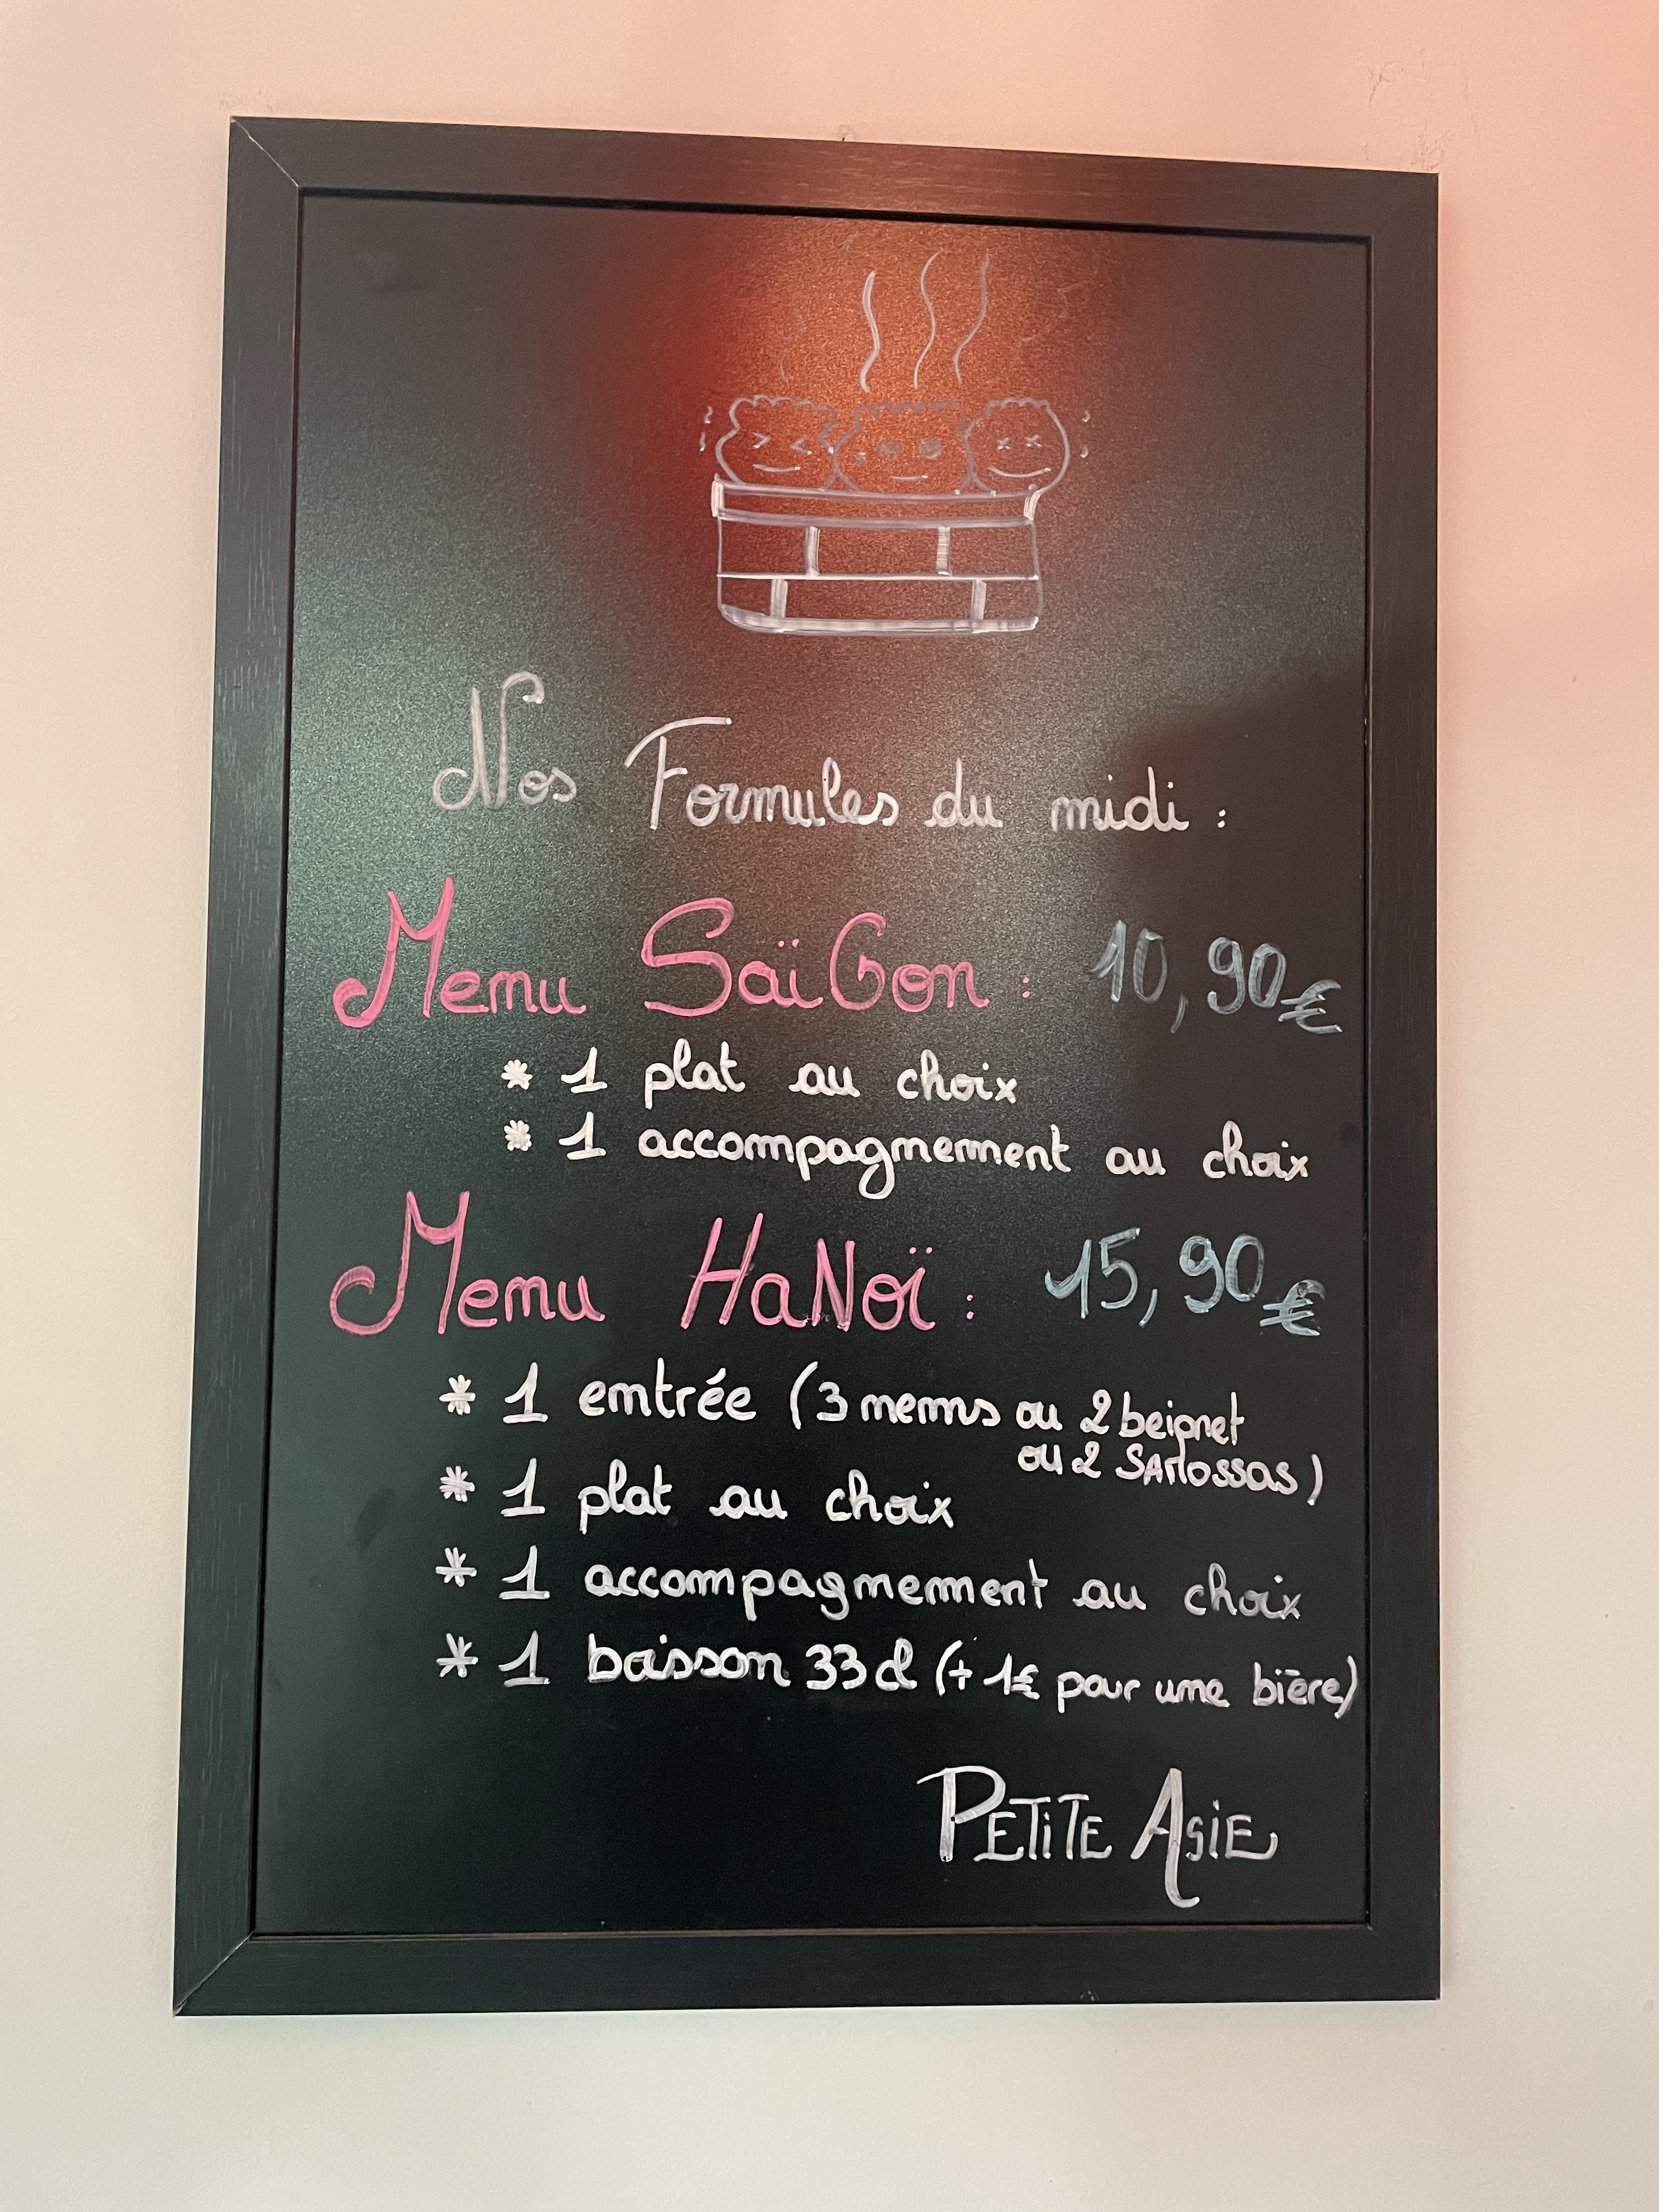 Nos Formules du midi :
Menu SaïGon : 10,90€
* 1 plat au choix
* 1 accompagnement au choix
Menu HaNoï : 15,90€
* 1 entrée (3 nems ou 2 beignet
ou 2 SAMossas)
* 1 plat au choix
* 1 accompagnement au choix
* 1 boisson 33cl (+ 1€ pour une bière)
PETiTE ASiE